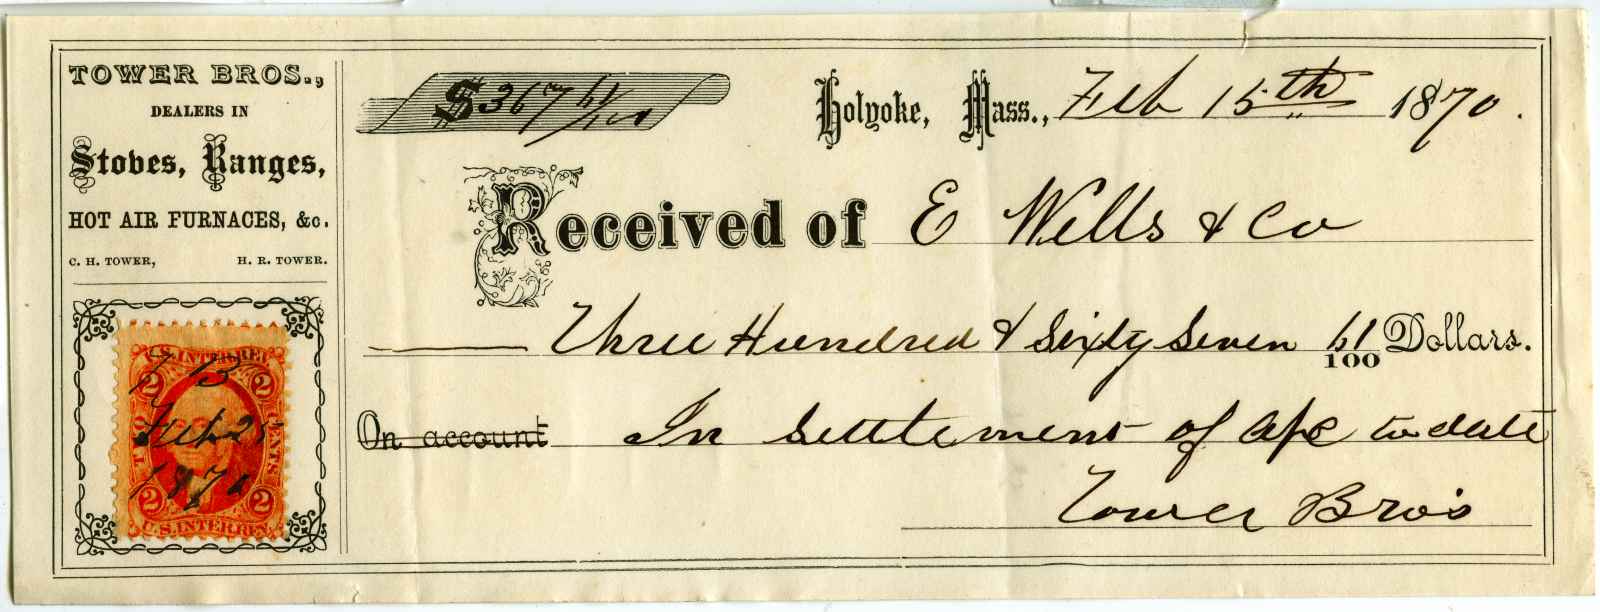 TOWER BROS.,
DEALERS IN
Stoves, Ranges,
HOT AIR FURNACES, &c.
C. H. TOWER, H. R. TOWER.
U.S. INTER. REV.
2 2
T B
Feb 25
1870
TWO CENTS
2 2
U.S. INTER. REV.
$367 61/100
Holyoke, Mass., Feb 15th 1870.
Received of E Wells & Co
Three Hundred & Sixty Seven 61/100 Dollars.
On account In Settlement of a/c to date
Tower Bro's